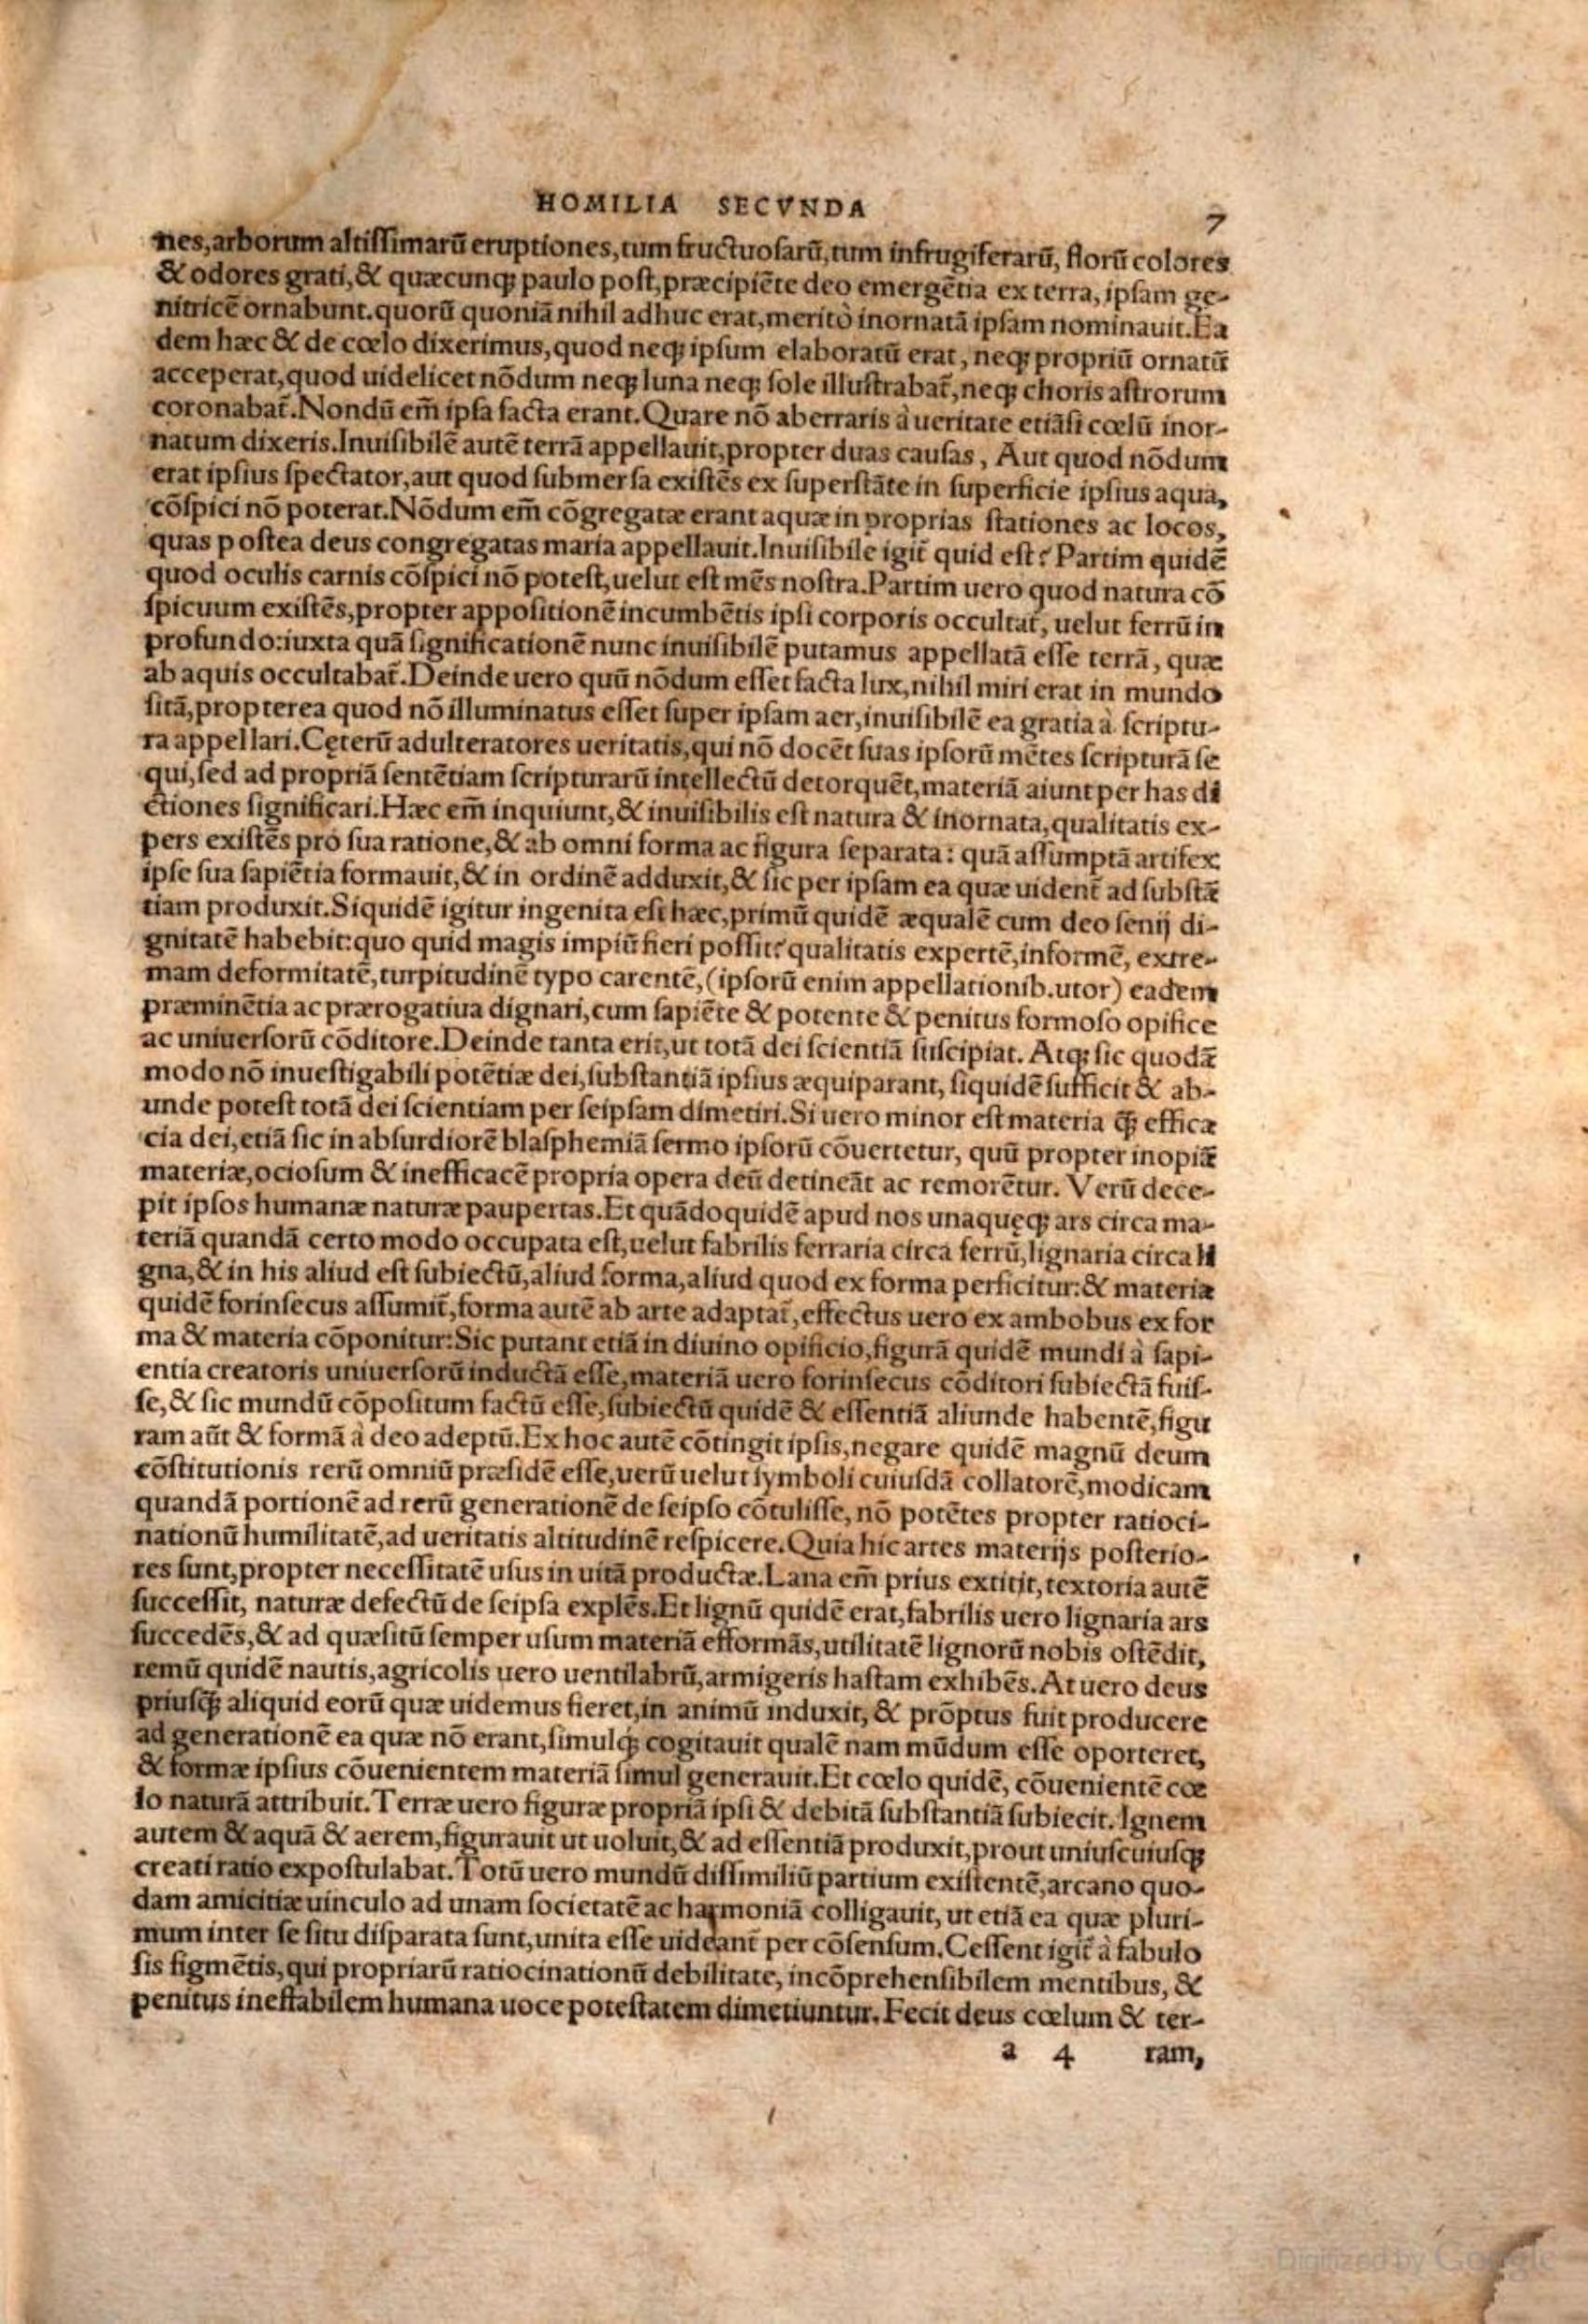 HOMILIA SECVNDA
7
nes, arborum altiſſimarũ eruptiones, tum fructuoſarũ, tum infrugiferarũ, florũ colores
& odores grati, & quæcunqȝ paulo poſt, præcipiẽte deo emergẽtia ex terra, ipſam ge-
nitricẽ ornabunt. quorũ quoniã nihil adhuc erat, meritò inornatã ipſam nominauit. Ea
dem hæc & de cœlo dixerimus, quod neqȝ ipſum elaboratũ erat, neqȝ propriũ ornatũ
acceperat, quod uidelicet nõdum neqȝ luna neqȝ ſole illuſtrabat̃, neqȝ choris aſtrorum
coronabat̃. Nondũ em̃ ipſa facta erant. Quare nõ aberraris à ueritate etiãſi cœlũ inor-
natum dixeris. Inuiſibilẽ autẽ terrã appellauit, propter duas cauſas, Aut quod nõdum
erat ipſius ſpectator, aut quod ſubmerſa exiſtẽs ex ſuperſtãte in ſuperficie ipſius aqua,
cõſpici nõ poterat. Nõdum em̃ cõgregatæ erant aquæ in proprias ſtationes ac locos,
quas poſtea deus congregatas maria appellauit. Inuiſibile igit̃ quid eſt? Partim quidẽ
quod oculis carnis cõſpici nõ poteſt, uelut eſt mẽs noſtra. Partim uero quod natura cõ
ſpicuum exiſtẽs, propter appoſitionẽ incumbẽtis ipſi corporis occultat̃, uelut ferrũ in
profundo: iuxta quã ſignificationẽ nunc inuiſibilẽ putamus appellatã eſſe terrã, quæ
ab aquis occultabat̃. Deinde uero quũ nõdum eſſet facta lux, nihil miri erat in mundo
ſitã, propterea quod nõ illuminatus eſſet ſuper ipſam aer, inuiſibilẽ ea gratia à ſcriptu-
ra appellari. Cęterũ adulteratores ueritatis, qui nõ docẽt ſuas ipſorũ mẽtes ſcripturã ſe
qui, ſed ad propriã ſentẽtiam ſcripturarũ intellectũ detorquẽt, materiã aiunt per has di
ctiones ſignificari. Hæc em̃ inquiunt, & inuiſibilis eſt natura & inornata, qualitatis ex-
pers exiſtẽs pro ſua ratione, & ab omni forma ac figura ſeparata: quã aſſumptã artifex
ipſe ſua ſapiẽtia formauit, & in ordinẽ adduxit, & ſic per ipſam ea quæ uident̃ ad ſubſtã
tiam produxit. Siquidẽ igitur ingenita eſt hæc, primũ quidẽ æqualẽ cum deo ſenij di-
gnitatẽ habebit: quo quid magis impiũ fieri poſſit? qualitatis expertẽ, informẽ, extre-
mam deformitatẽ, turpitudinẽ typo carentẽ, (ipſorũ enim appellationib. utor) eadem
præminẽtia ac prærogatiua dignari, cum ſapiẽte & potente & penitus formoſo opifice
ac uniuerſorũ cõditore. Deinde tanta erit, ut totã dei ſcientiã ſuſcipiat. Atqȝ ſic quodã
modo nõ inueſtigabili potẽtiæ dei, ſubſtantiã ipſius æquiparant, ſiquidẽ ſufficit & ab-
unde poteſt totã dei ſcientiam per ſeipſam dimetiri. Si uero minor eſt materia q̃ȝ effica
cia dei, etiã ſic in abſurdiorẽ blaſphemiã ſermo ipſorũ cõuertetur, quũ propter inopiã
materiæ, ocioſum & inefficacẽ propria opera deũ detineãt ac remorẽtur. Verũ dece-
pit ipſos humanæ naturæ paupertas. Et quãdoquidẽ apud nos unaquęqȝ ars circa ma-
teriã quandã certo modo occupata eſt, uelut fabrilis ferraria circa ferrũ, lignaria circa li
gna, & in his aliud eſt ſubiectũ, aliud forma, aliud quod ex forma perficitur: & materia
quidẽ forinſecus aſſumit̃, forma autẽ ab arte adaptat̃, effectus uero ex ambobus ex for
ma & materia cõponitur: Sic putant etiã in diuino opificio, figurã quidẽ mundi à ſapi-
entia creatoris uniuerſorũ inductã eſſe, materiã uero forinſecus cõditori ſubiectã fuiſ-
ſe, & ſic mundũ cõpoſitum factũ eſſe, ſubiectũ quidẽ & eſſentiã aliunde habentẽ, figu
ram aũt & formã à deo adeptũ. Ex hoc autẽ cõtingit ipſis, negare quidẽ magnũ deum
cõſtitutionis rerũ omniũ præſidẽ eſſe, uerũ uelut ſymboli cuiuſdã collatorẽ, modicam
quandã portionẽ ad rerũ generationẽ de ſeipſo cõtuliſſe, nõ potẽtes propter ratioci-
nationũ humilitatẽ, ad ueritatis altitudinẽ reſpicere. Quia hic artes materijs poſterio-
res ſunt, propter neceſſitatẽ uſus in uitã productæ. Lana em̃ prius extitit, textoria autẽ
ſucceſſit, naturæ defectũ de ſeipſa explẽs. Et lignũ quidẽ erat, fabrilis uero lignaria ars
ſuccedẽs, & ad quæſitũ ſemper uſum materiã efformãs, utilitatẽ lignorũ nobis oſtẽdit,
remũ quidẽ nautis, agricolis uero uentilabrũ, armigeris haſtam exhibẽs. At uero deus
priuſq̃ȝ aliquid eorũ quæ uidemus fieret, in animũ induxit, & prõptus fuit producere
ad generationẽ ea quæ nõ erant, ſimulqȝ cogitauit qualẽ nam mũdum eſſe oporteret,
& formæ ipſius cõuenientem materiã ſimul generauit. Et cœlo quidẽ, cõuenientẽ cœ
lo naturã attribuit. Terræ uero figuræ propriã ipſi & debitã ſubſtantiã ſubiecit. Ignem
autem & aquã & aerem, figurauit ut uoluit, & ad eſſentiã produxit, prout uniuſcuiuſqȝ
creati ratio expoſtulabat. Totũ uero mundũ diſſimiliũ partium exiſtentẽ, arcano quo-
dam amicitiæ uinculo ad unam ſocietatẽ ac harmoniã colligauit, ut etiã ea quæ pluri-
mum inter ſe ſitu diſparata ſunt, unita eſſe uideant̃ per cõſenſum. Ceſſent igit̃ à fabulo
ſis figmẽtis, qui propriarũ ratiocinationũ debilitate, incõprehenſibilem mentibus, &
penitus ineffabilem humana uoce poteſtatem dimetiuntur. Fecit deus cœlum & ter-
a 4 ram,
Digitized by Google